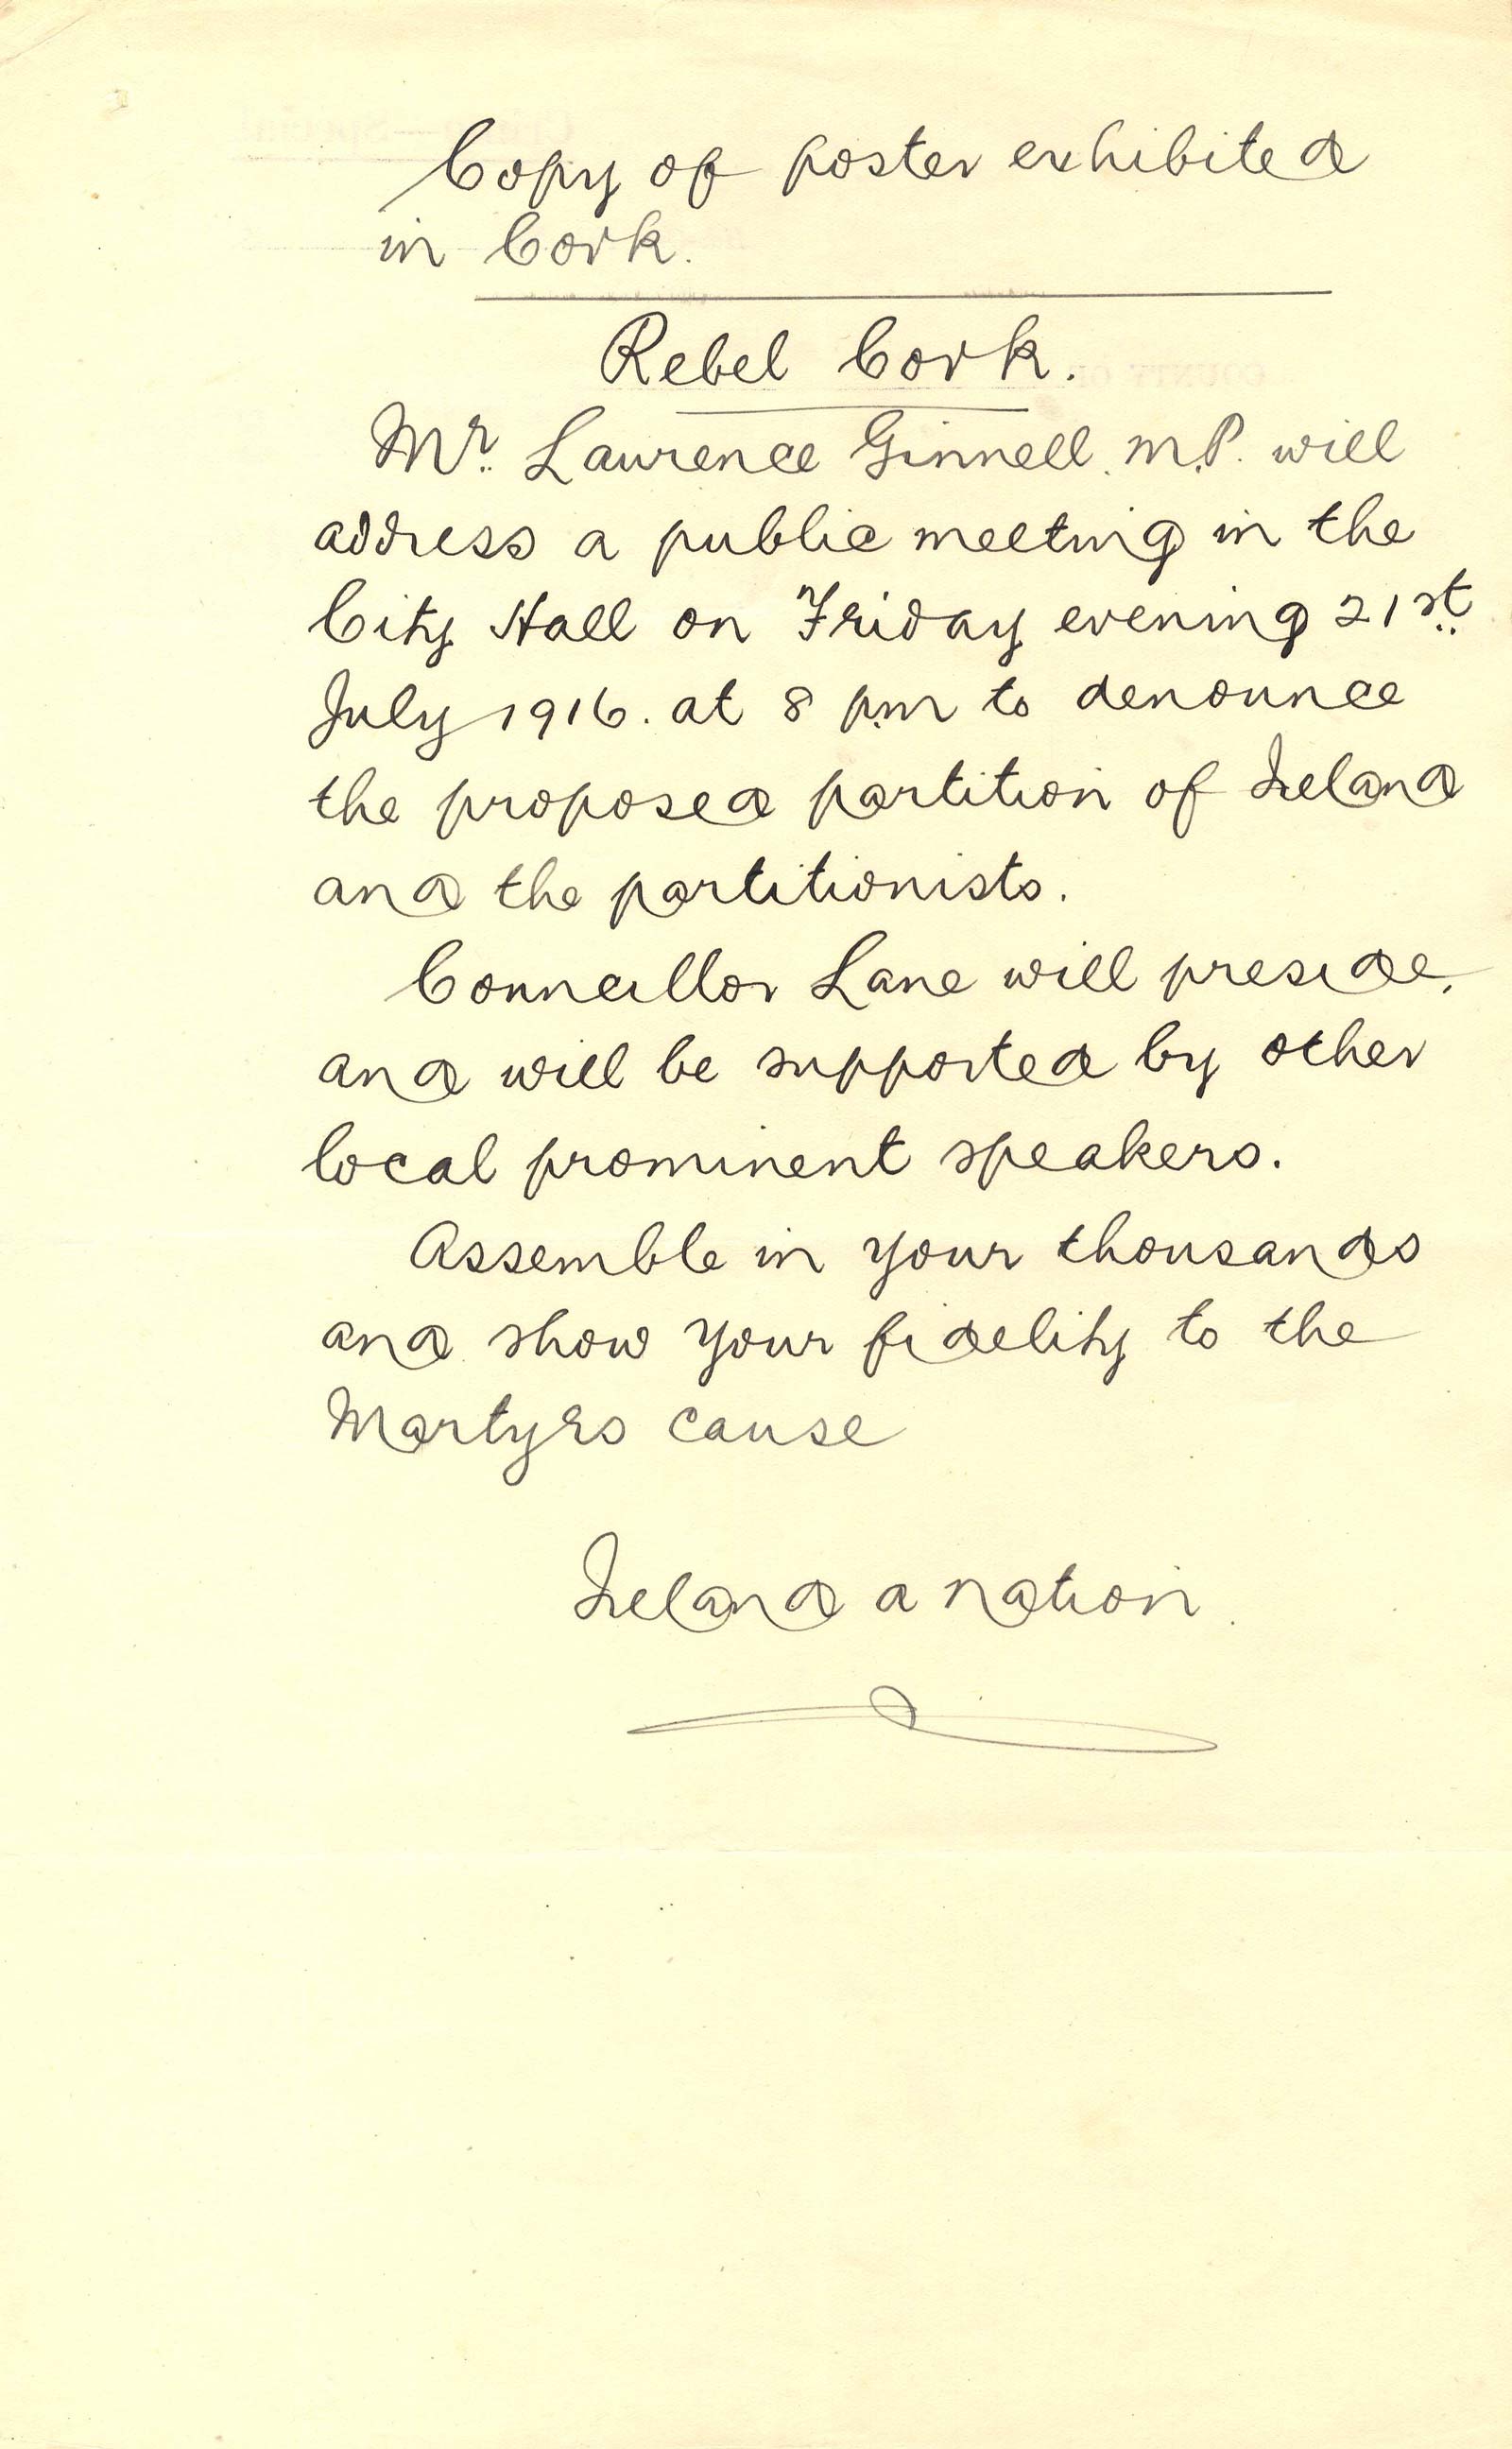 Copy of poster exhibited
in Cork.
Rebel Cork.
Mr. Lawrence Ginnell. M.P. will
address a public meeting in the
City Hall on Friday evening 21st
July 1916. at 8 p.m to denounce
the proposed partition of Ireland
and the partitionists.
Councillor Lane will preside,
and will be supported by other
local prominent speakers.
Assemble in your thousands
and show your fidelity to the
Martyrs cause
Ireland a nation.